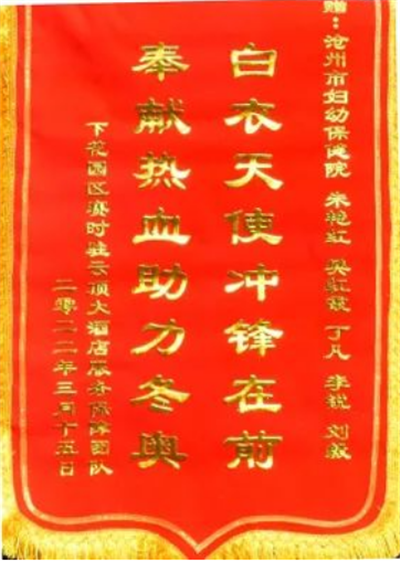 赠：沧州市妇幼保健院 朱艳红 樊虹霞 丁凡 李锐 刘毅
白衣天使冲锋在前
奉献热血助力冬奥
下花园区赛时驻云顶大酒店服务保障团队
二零二二年三月十五日